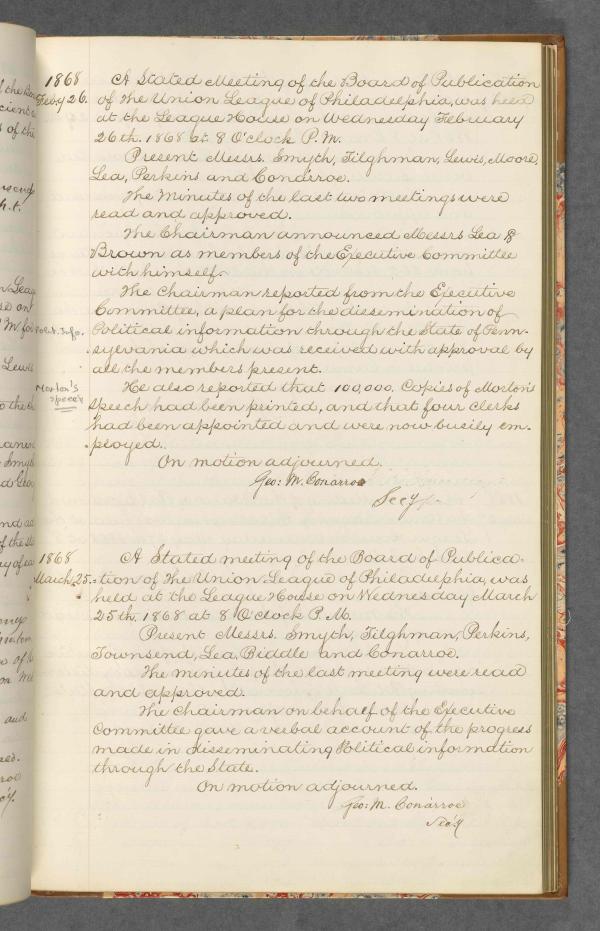 1868
Feby 26.
A Stated Meeting of the Board of Publication
of the Union League of Philadelphia, was held
at the League House on Wednesday February
26th. 1868 at 8 O'clock P.M.
Present Messrs. Smyth, Tilghman, Lewis, Moore,
Lea, Perkins and Conarroe.
The Minutes of the last two meetings were
read and approved.
The Chairman announced Messrs Lea &
Brown as members of the Executive Committee
with himself.
The Chairman reported from the Executive
Committee, a plan for the dissemination of
Polit. Info.
Political information through the State of Penn-
sylvania which was received with approval by
all the members present.
Morton's
Speech
He also reported that 100,000, Copies of Morton's
speech had been printed, and that four clerks
had been appointed and were now busily em-
ployed.
On motion adjourned.
Geo: M. Conarroe
Secy
1868
March 25.
A Stated meeting of the Board of Publica-
tion of the Union League of Philadelphia, was
held at the League House on Wednesday March
25th. 1868 at 8 O'clock P.M.
Present Messrs. Smyth, Tilghman, Perkins,
Townsend, Lea, Biddle and Conarroe.
The minutes of the last meeting were read
and approved.
The Chairman on behalf of the Executive
Committee gave a verbal account of the progress
made in disseminating Political information
through the State.
On motion adjourned.
Geo: M. Conarroe
Sec'y